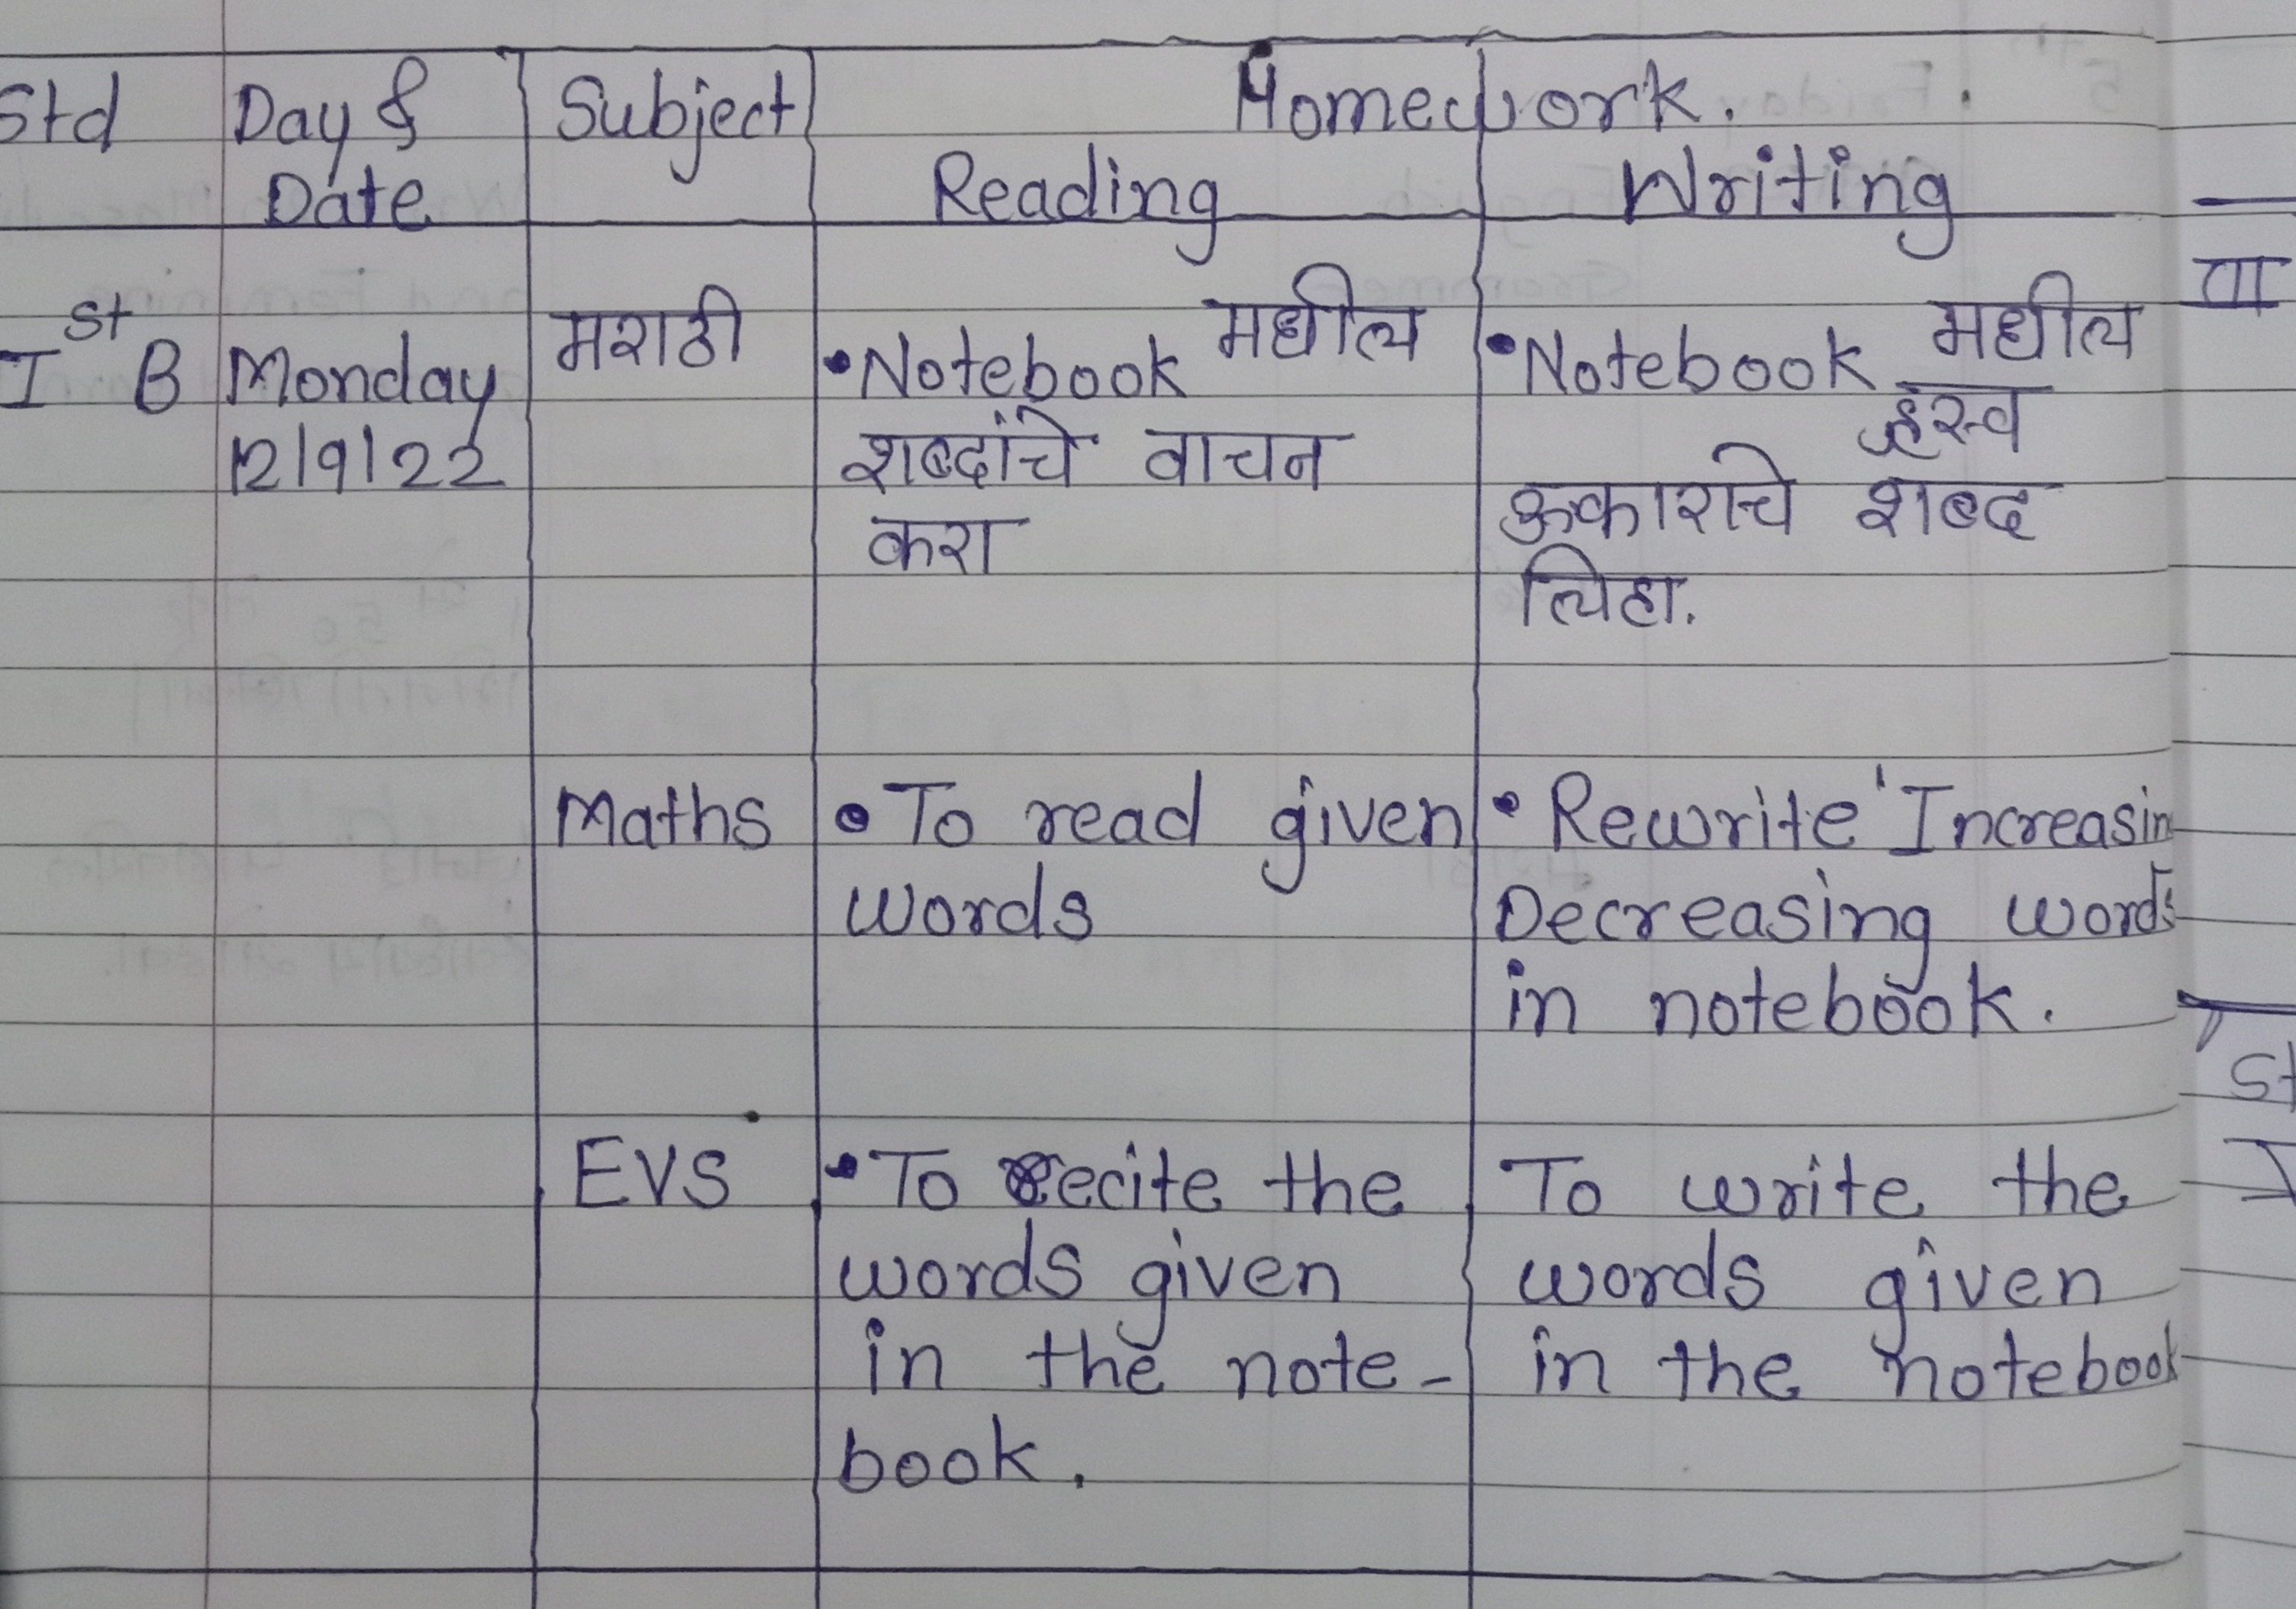 Std Day & Subject Homework.
Date Reading Writing
Ist B Monday मराठी • Notebook मधील • Notebook मधील
12/9/22 शब्दांचे वाचन ह्रस्व
करा ऊकाराचे शब्द
लिहा.
Maths • To read given • Rewrite 'Increasin
words Decreasing words
in notebook.
EVS • To recite the To write the
words given words given
in the note- in the notebook
book.
III
St